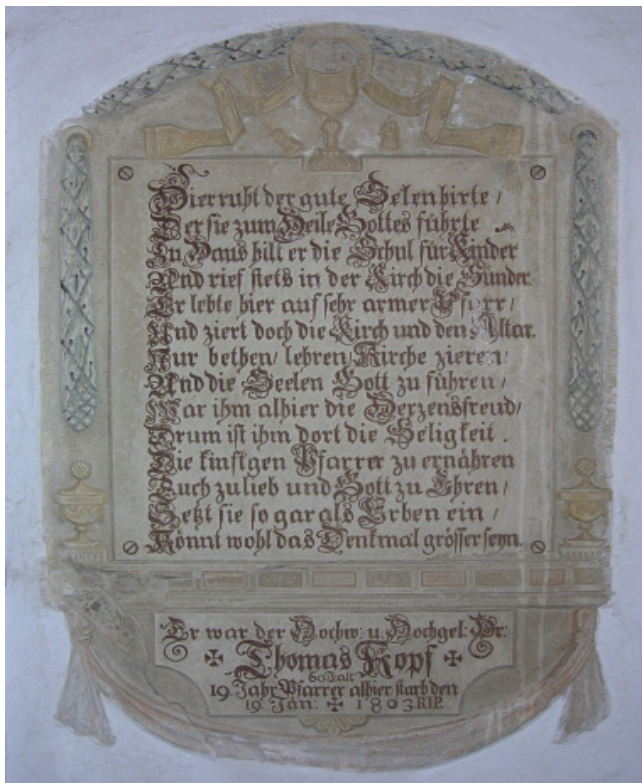 Hier ruht der gute Selenhirte /
Der sie zum Heile Gottes führte
In Haus hilt er die Schul für Kinder
Und rief stets in der Kirch die Sünder.
Er lebte hier auf sehr armer Pfarr /
Und ziert doch die Kirch und den Altar.
Nur bethen / lehren / Kirche zieren /
Und die Seelen Gott zu führen /
War ihm alhier die Herzensfreud /
Drum ist ihm dort die Seligkeit .
Die kinftgen Pfarrer zu ernähren
Euch zulieb und Gott zu Ehren /
Setzt sie so gar als Erben ein /
Könnt wohl das Denkmal grösser seyn.
Er war der Hochw: u. Hochgel: Hr:
Thomas Kopf
alt
19 Jahr Pfarrer alhier starb den
19 Jän: ✠ 1803. RIP.